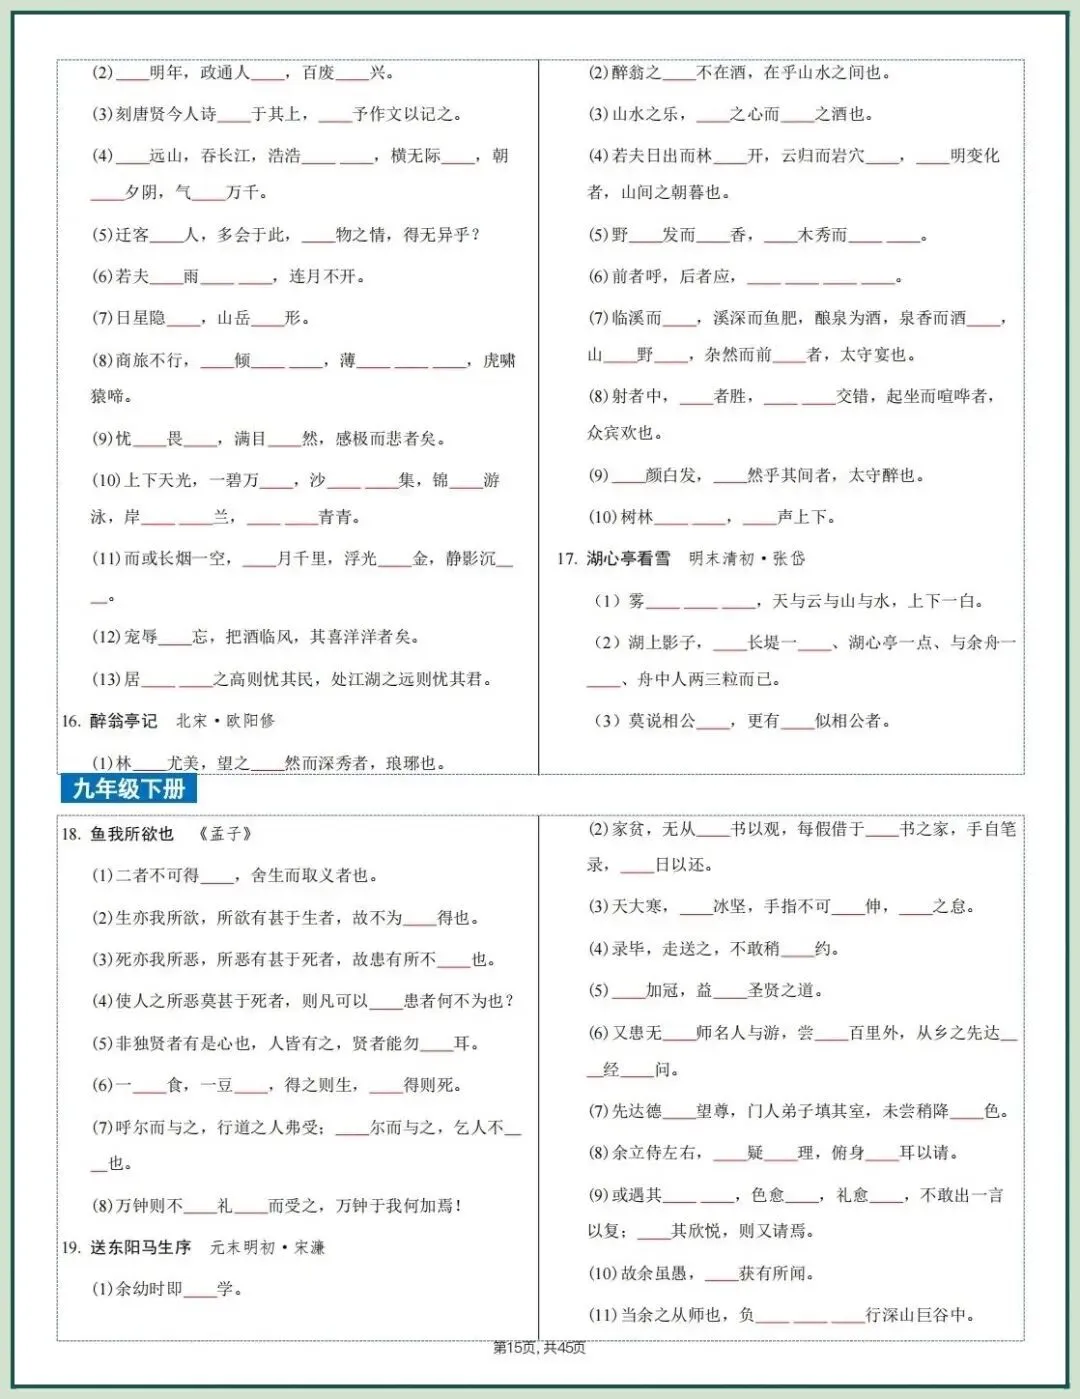 (2)____明年，政通人____，百废____兴。
(3)刻唐贤今人诗____于其上，____予作文以记之。
(4)____远山，吞长江，浩浩____ ____，横无际____，朝
____夕阴，气____万千。
(5)迁客____人，多会于此，____物之情，得无异乎？
(6)若夫____雨____ ____，连月不开。
(7)日星隐____，山岳____形。
(8)商旅不行，____倾____ ____，薄____ ____ ____，虎啸
猿啼。
(9)忧____畏____，满目____然，感极而悲者矣。
(10)上下天光，一碧万____，沙____ ____集，锦____游
泳，岸____ ____兰，____ ____青青。
(11)而或长烟一空，____月千里，浮光____金，静影沉__
__。
(12)宠辱____忘，把酒临风，其喜洋洋者矣。
(13)居____ ____之高则忧其民，处江湖之远则忧其君。
16. 醉翁亭记 北宋·欧阳修
(1)林____尤美，望之____然而深秀者，琅琊也。
(2)醉翁之____不在酒，在乎山水之间也。
(3)山水之乐，____之心而____之酒也。
(4)若夫日出而林____开，云归而岩穴____，____明变化
者，山间之朝暮也。
(5)野____发而____香，____木秀而____ ____。
(6)前者呼，后者应，____ ____ ____ ____。
(7)临溪而____，溪深而鱼肥，酿泉为酒，泉香而酒____，
山____野____，杂然而前____者，太守宴也。
(8)射者中，____者胜，____ ____交错，起坐而喧哗者，
众宾欢也。
(9)____颜白发，____然乎其间者，太守醉也。
(10)树林____ ____，____声上下。
17. 湖心亭看雪 明末清初·张岱
（1）雾____ ____ ____，天与云与山与水，上下一白。
（2）湖上影子，____长堤一____、湖心亭一点、与余舟一
____、舟中人两三粒而已。
（3）莫说相公____，更有____似相公者。
九年级下册
18. 鱼我所欲也 《孟子》
(1)二者不可得____，舍生而取义者也。
(2)生亦我所欲，所欲有甚于生者，故不为____得也。
(3)死亦我所恶，所恶有甚于死者，故患有所不____也。
(4)使人之所恶莫甚于死者，则凡可以____患者何不为也？
(5)非独贤者有是心也，人皆有之，贤者能勿____耳。
(6)一____食，一豆____，得之则生，____得则死。
(7)呼尔而与之，行道之人弗受；____尔而与之，乞人不__
__也。
(8)万钟则不____礼____而受之，万钟于我何加焉！
19. 送东阳马生序 元末明初·宋濂
(1)余幼时即____学。
(2)家贫，无从____书以观，每假借于____书之家，手自笔
录，____日以还。
(3)天大寒，____冰坚，手指不可____伸，____之怠。
(4)录毕，走送之，不敢稍____约。
(5)____加冠，益____圣贤之道。
(6)又患无____师名人与游，尝____百里外，从乡之先达__
__经____问。
(7)先达德____望尊，门人弟子填其室，未尝稍降____色。
(8)余立侍左右，____疑____理，俯身____耳以请。
(9)或遇其____ ____，色愈____，礼愈____，不敢出一言
以复；____其欣悦，则又请焉。
(10)故余虽愚，____获有所闻。
(11)当余之从师也，负____ ____ ____行深山巨谷中。
第15页，共45页